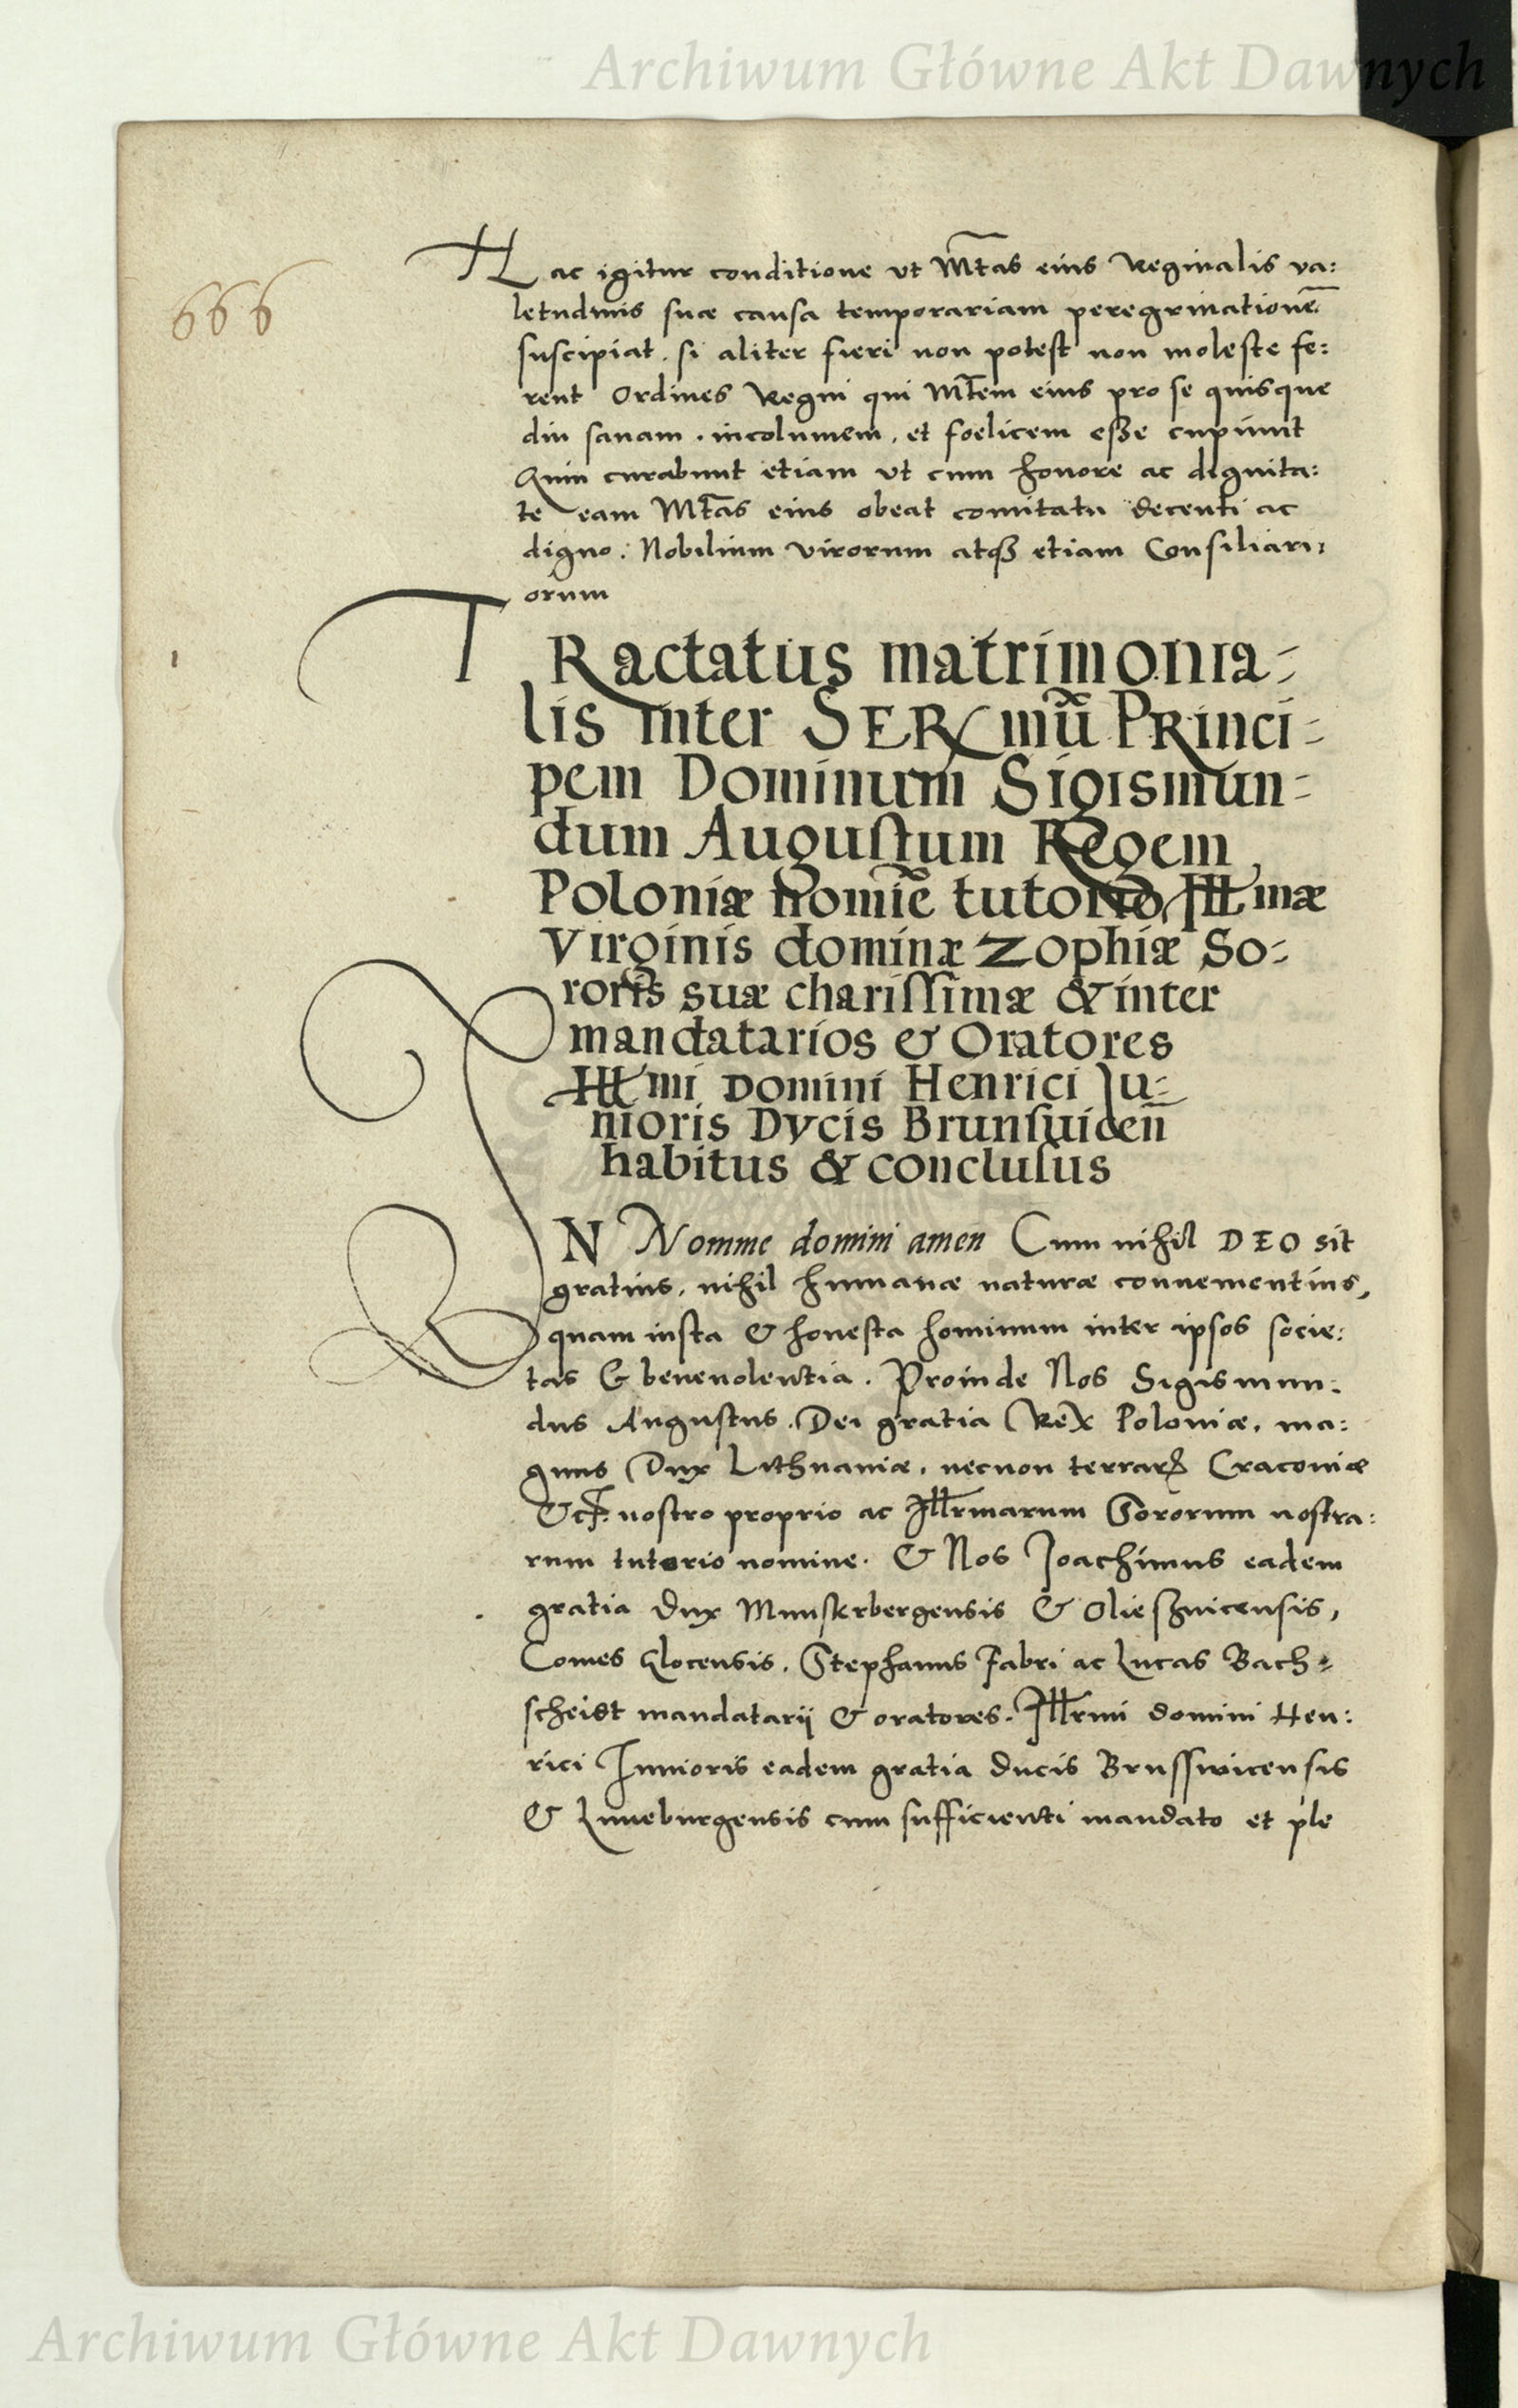 Archiwum Główne Akt Dawnych
666
Hac igitur conditione ut Mtas eius Reginalis va:
letudinis suæ causa temporariam peregrinationē
suscipiat. si aliter fieri non potest non moleste fe:
rent Ordines Regni qui Mtem eius pro se quisque
diu sanam. incolumem, et foelicem esse cupiunt
Quin curabunt etiam ut cum honore ac dignita:
te eam Mtas eius obeat comitatu decenti ac
digno. Nobilium virorum atq3 etiam Consiliari:
orum
TRactatus matrimonia-
lis inter SERmū PRinci-
pem Dominum Sigismun-
dum Augustum Regem
Poloniæ nomīe tutorio, Illmæ
Virginis dominæ Zophiæ So-
roris suæ charissimæ & inter
mandatarios & Oratores
Illmi Domini Henrici Ju-
nioris Dvcis Brunsuiceñ
habitus & conclusus
IN Nomine domini amen Cum nihil DEO sit
gratius, nihil humanæ naturæ conuenientius,
quam iusta & honesta hominum inter ipsos socie:
tas & beneuolentia. Proinde Nos Sigismun:
dus Augustus. Dei gratia Rex Poloniæ, ma:
gnus Dux Lithuaniæ, necnon terrarꝝ Craconiæ
&c. nostro proprio ac Illrmarum Sororum nostra:
rum tutorio nomine. & Nos Joachimus eadem
gratia Dux Munsterbergensis & Oliesznicensis,
Comes Glocensis. Stephanus Fabri ac Lucas Bach-
scheidt mandatarij & oratores. Illrmi domini Hen:
rici Iunioris eadem gratia ducis Brusswicensis
& Luneburgensis cum sufficienti mandato et ple
Archiwum Główne Akt Dawnych